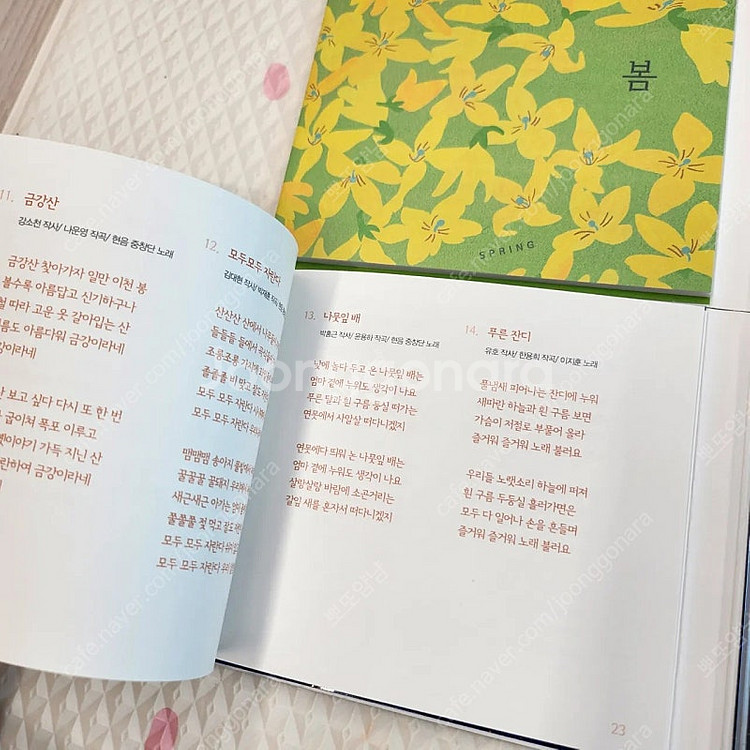 봄
SPRING
11. 금강산
강소천 작사/ 나운영 작곡/ 현음 중창단 노래
금강산 찾아가자 일만 이천 봉
볼수록 아름답고 신기하구나
철 따라 고운 옷 갈아입는 산
름도 아름다워 금강이라네
강이라네
보고 싶다 다시 또 한 번
급이쳐 폭포 이루고
옛이야기 가득 지닌 산
란하여 금강이라네
12. 모두모두 자란다
김대현 작사/ 박재훈 작곡/
산산산 산에서 나무
들들들 들에서 곡식
조롱조롱 가지
졸졸졸 비 먹고
모두 모두 자란다
모두 모두 자란다
맴맴맴 송아지
꿀꿀꿀 꿀돼지 우리
새근새근 아기는 엄마
쭐쭐쭐 젖 먹고
모두 모두 자란다
모두 모두 자란다
13. 나뭇잎 배
박홍근 작사/ 윤용하 작곡/ 현음 중창단 노래
낮에 놀다 두고 온 나뭇잎 배는
엄마 곁에 누워도 생각이 나요
푸른 달과 흰 구름 둥실 떠가는
연못에서 사알살 떠다니겠지
연못에다 띄워 논 나뭇잎 배는
엄마 곁에 누워도 생각이 나요
살랑살랑 바람에 소곤거리는
갈잎 새를 혼자서 떠다니겠지
14. 푸른 잔디
유호 작사/ 한용희 작곡/ 이지훈 노래
풀냄새 피어나는 잔디에 누워
새파란 하늘과 흰 구름 보면
가슴이 저절로 부풀어 올라
즐거워 즐거워 노래 불러요
우리들 노랫소리 하늘에 퍼져
흰 구름 두둥실 흘러가면은
모두 다 일어나 손을 흔들며
즐거워 즐거워 노래 불러요
23
joonggonara
cafe.naver.com/joonggonara